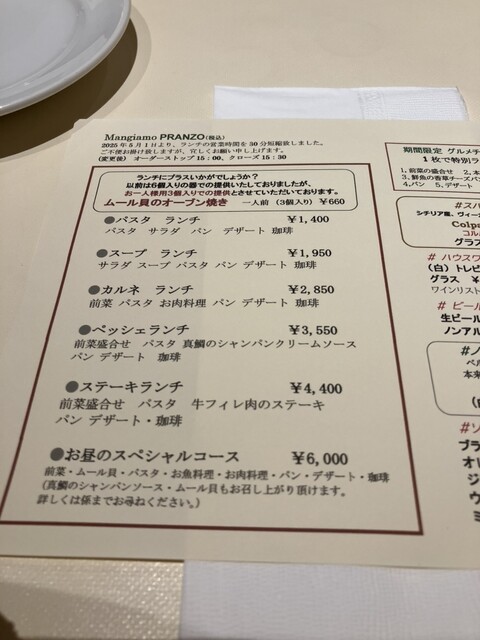 Mangiamo PRANZO(税込)
2025年5月1日より、ランチの営業時間を30分短縮致しました。
ご不便お掛け致しますが、宜しくお願い申し上げます。
(変更後) オーダーストップ 15:00、クローズ 15:30
ランチにプラスいかがでしょうか?
以前は6個入りの器での提供いたしておりましたが、
お一人様用3個入りでの提供とさせていただいております。
ムール貝のオーブン焼き 一人前 (3個入り) ¥660
●パスタ ランチ ¥1,400
パスタ サラダ パン デザート 珈琲
●スープ ランチ ¥1,950
サラダ スープ パスタ パン デザート 珈琲
●カルネ ランチ ¥2,850
前菜 パスタ お肉料理 パン デザート 珈琲
●ペッシェランチ ¥3,550
前菜盛合せ パスタ 真鯛のシャンパンクリームソース
パン デザート 珈琲
●ステーキランチ ¥4,400
前菜盛合せ パスタ 牛フィレ肉のステーキ
パン デザート・珈琲
●お昼のスペシャルコース ¥6,000
前菜・ムール貝・パスタ・お魚料理・お肉料理・パン・デザート・珈琲
(真鯛のシャンパンソース・ムール貝もお召し上がり頂けます。
詳しくは係までお尋ねください。)
期間限定 グルメチ
1枚で特別ラ
1.前菜の盛合せ 2.本
3.鮮魚の香草チーズパン
4.パン 5.デザート
#スパ
シチリア産、ヴィー
Colpa
コル
グラス
# ハウスワ
(白) トレビ
グラス ¥
ワインリスト
# ビール
生ビール
ノンアル
#ノ
ベル
本来
(白
#ソ
ブラ
オレ
ジ
ウ
ミ